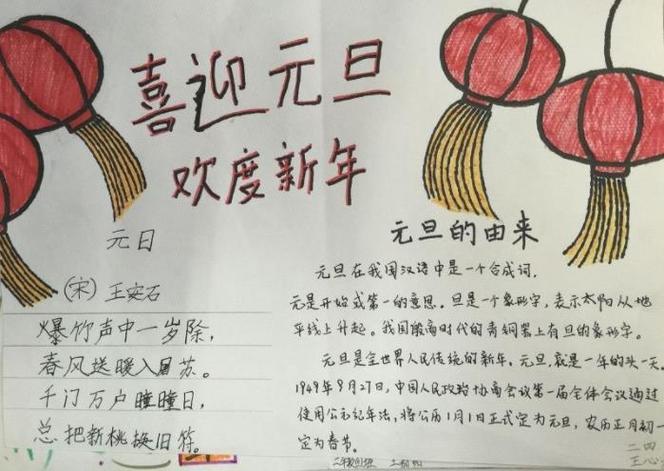 喜迎元旦
欢度新年
元日
(宋) 王安石
爆竹声中一岁除，
春风送暖入屠苏。
千门万户曈曈日，
总把新桃换旧符。
元旦的由来
元旦在我国汉语中是一个合成词，
元是开始或第一的意思。旦是一个象形字，表示太阳从地
平线上升起。我国殷商时代的青铜器上有旦的象形字。
元旦是全世界人民传统的新年。元旦，就是一年的头一天。
1949年9月27日，中国人民政治协商会议第一届全体会议通过
使用公元纪年法，将公历1月1日正式定为元旦，农历正月初一
定为春节。
二四